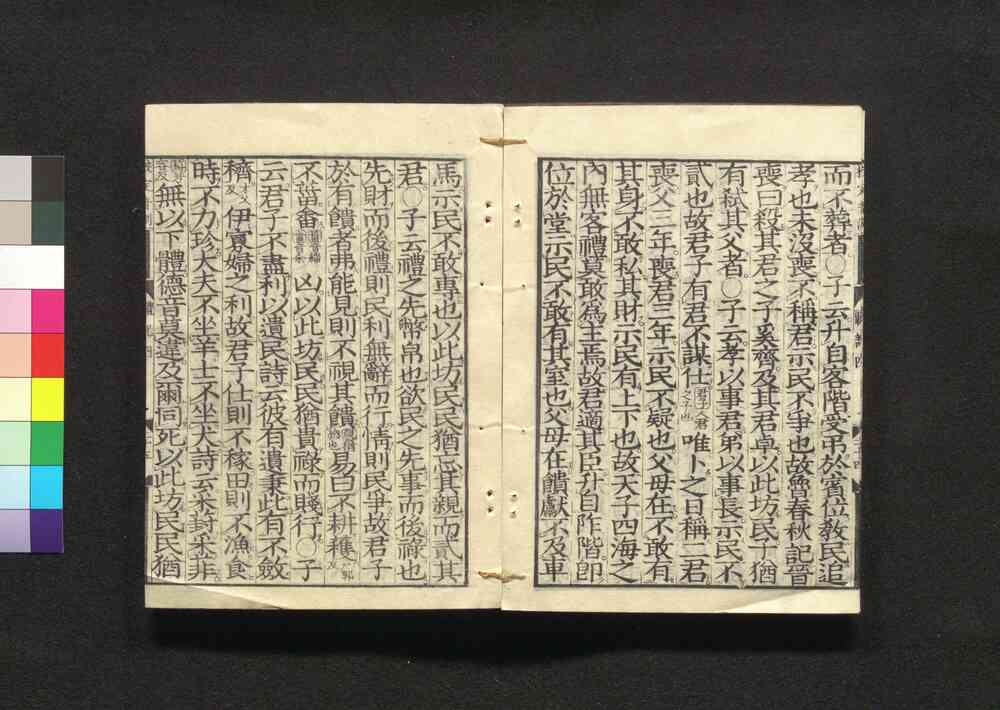 而不葬者○子云升自客階受弔於賓位敎民追
孝也未沒喪不稱君示民不爭也故魯春秋記晉
喪曰殺其君之子奚齊及其君卓以此坊民子猶
有弑其父者○子云孝以事君弟以事長示民不
貳也故君子有君不謀仕唯卜之日稱二君
喪父三年喪君三年示民不疑也父母在不敢有
其身不敢私其財示民有上下也故天子四海之
內無客禮莫敢爲主焉故君適其臣升自阼階卽
位於堂示民不敢有其室也父母在饋獻不及車
馬示民不敢專也以此坊民民猶忘其親而貳其
君○子云禮之先幣帛也欲民之先事而後祿也
先財而後禮則民利無辭而行情則民爭故君子
於有饋者弗能見則不視其饋易曰不耕穫
不菑畬凶以此坊民民猶貴祿而賤行○子
云君子不盡利以遺民詩云彼有遺秉此有不斂
穧伊寡婦之利故君子仕則不稼田則不漁食
時不力珍大夫不坐羊士不坐犬詩云采葑采菲
無以下體德音莫違及爾同死以此坊民民猶